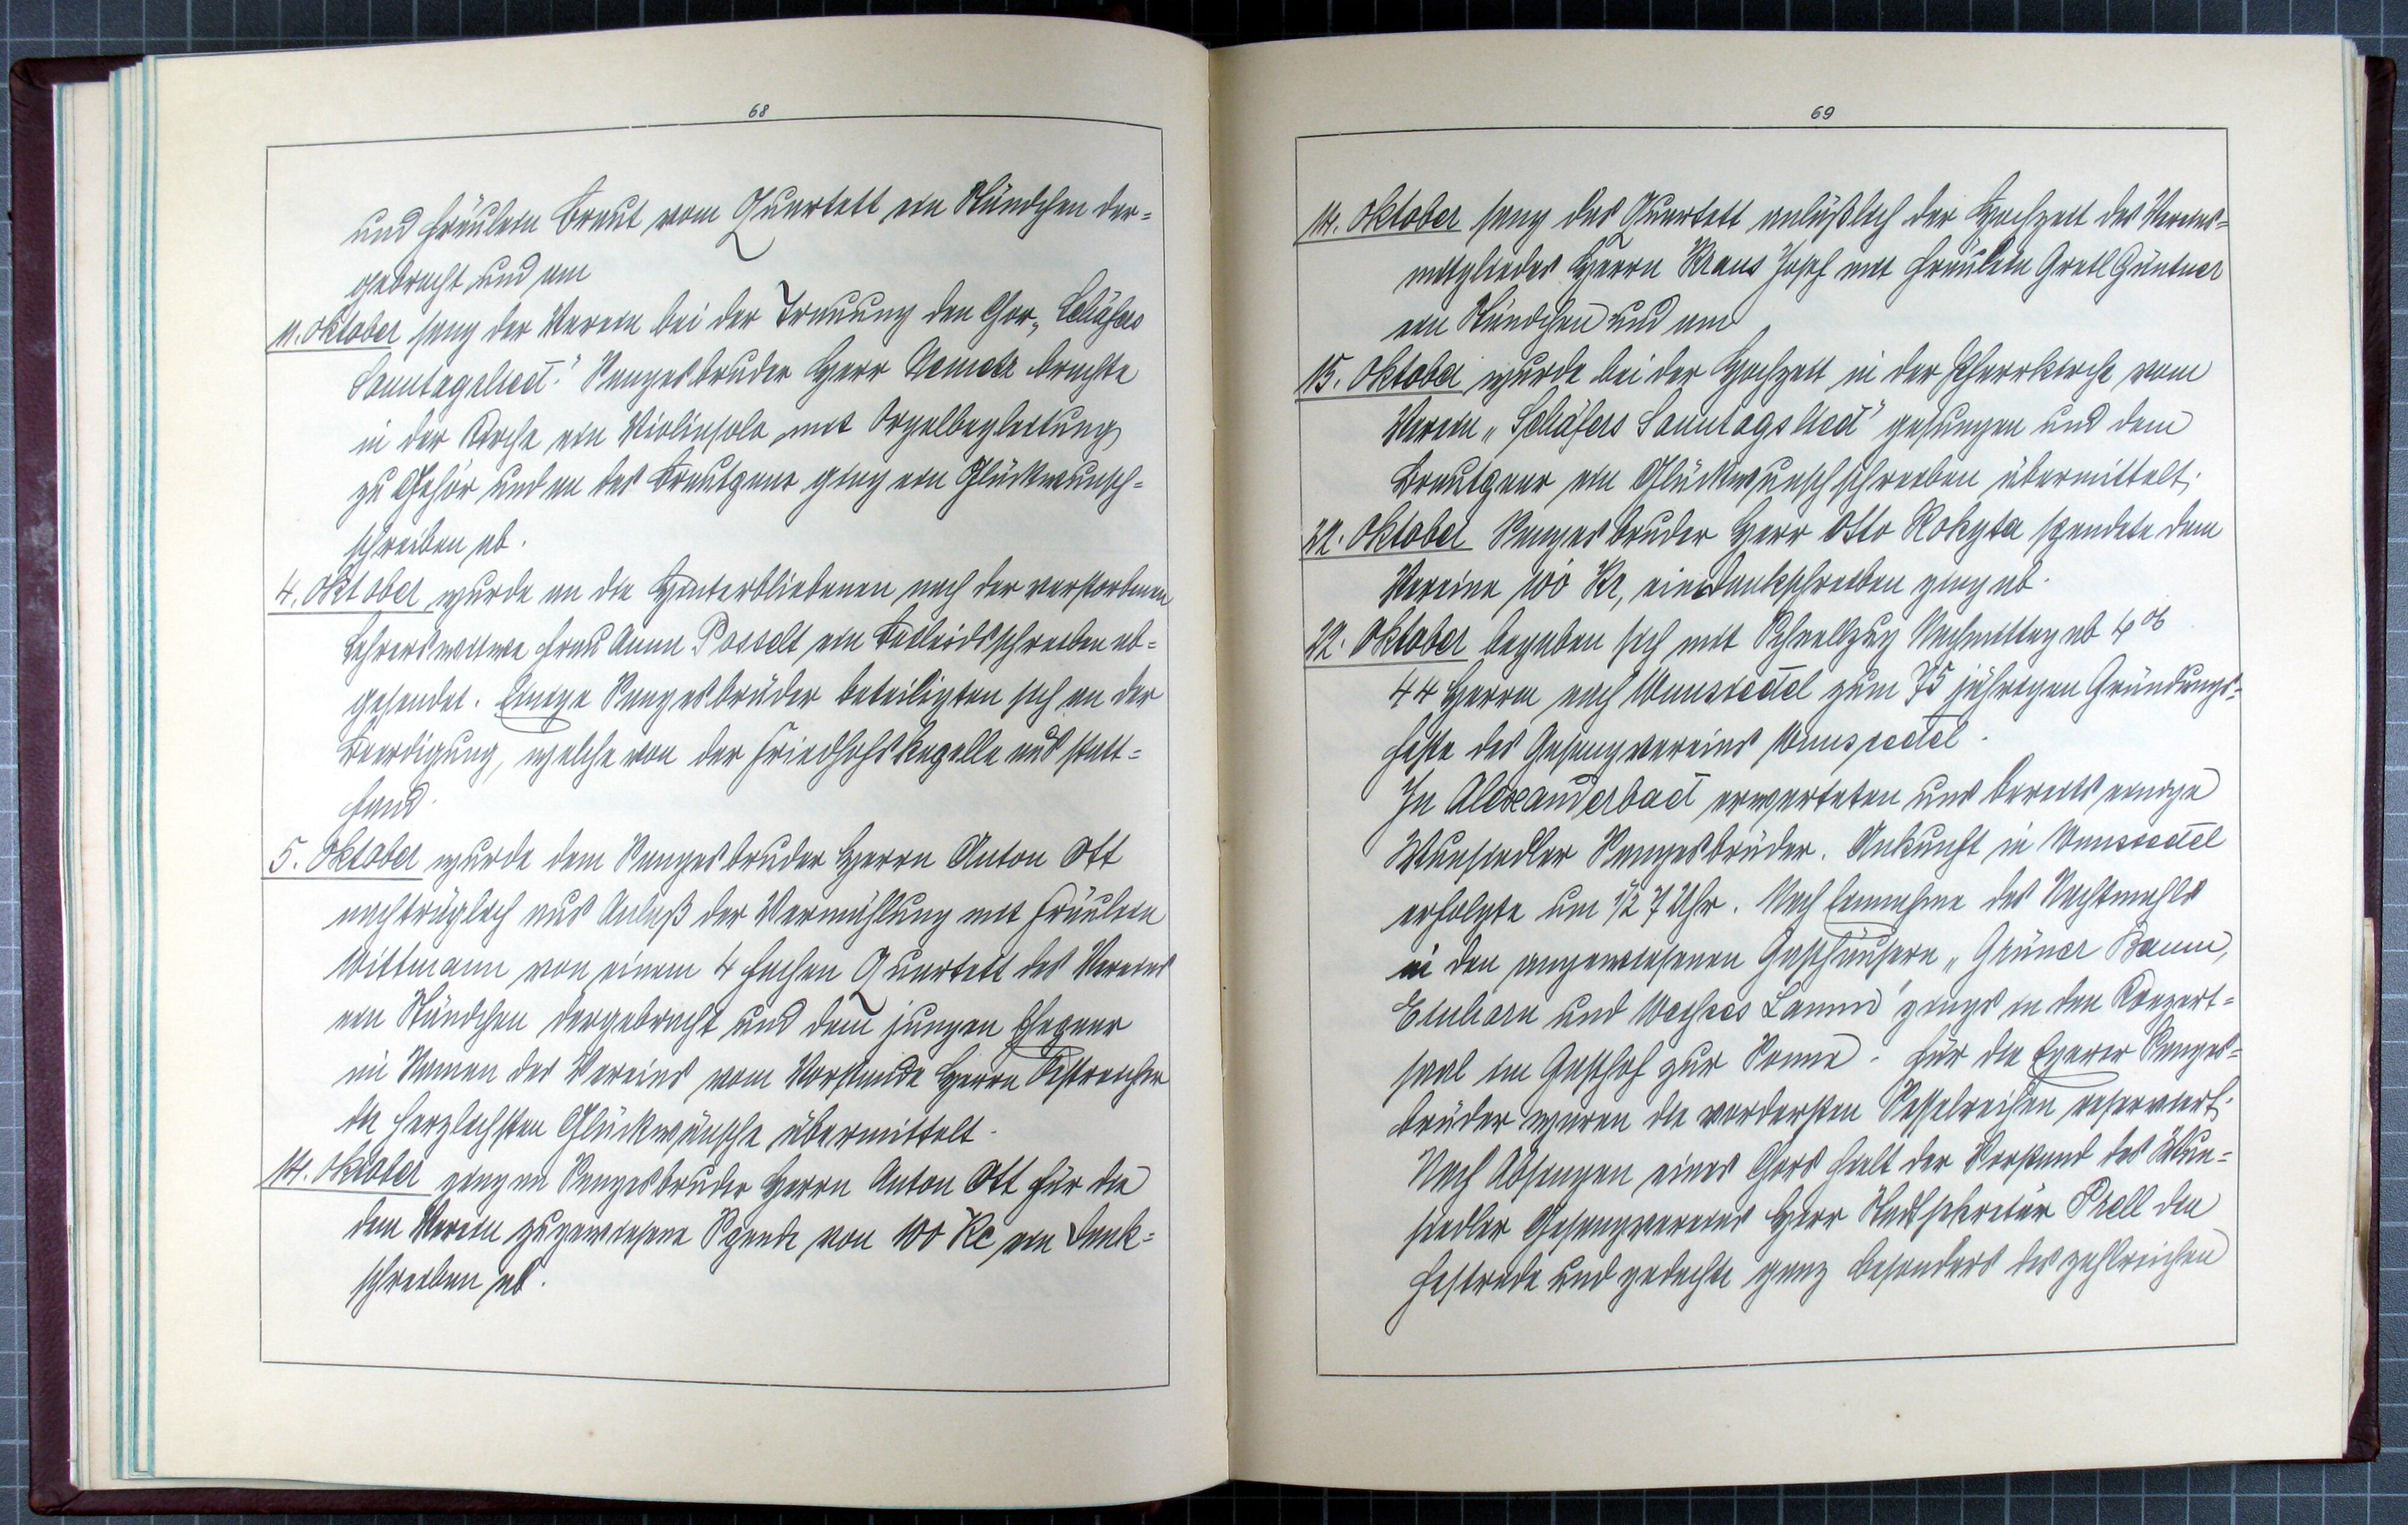 68
und Fräulein Braut vom Quartett ein Ständchen dar-
gebracht und am
11. Oktober sang der Verein bei der Trauung den Chor „Schäfers
Sonntagslied." Sangesbruder Herr Nemetz brachte
in der Kirche ein Violinsolo mit Orgelbegleitung
zu Gehör und an das Brautpaar ging ein Glückwunsch-
schreiben ab.
4. Oktober wurde an die Hinterbliebenen nach der verstorbenen
Lehrerswitwe Frau Anna Posselt ein Beileidsschreiben ab-
gesendet. Einige Sangesbrüder beteiligten sich an der
Beerdigung, welche von der Friedhofskapelle aus statt-
fand.
5. Oktober wurde dem Sangesbruder Herrn Anton Ott
nachträglich aus Anlaß der Vermählung mit Fräulein
Wittmann von einem 4 fachen Quartett des Vereins
ein Ständchen dargebracht und dem jungen Ehepaar
im Namen des Vereins vom Vorstande Herrn
die herzlichsten Glückwünsche übermittelt.
14. Oktober ging an Sangesbruder Herrn Anton Ott für die
dem Verein zugewiesene Spende von 100 Kc ein Dank-
schreiben ab.
69
14. Oktober sang das Quartett anläßlich der Hochzeit des Vereins-
mitgliedes Herrn Kraus Josef mit Fräulein Gretl Güntner
ein Ständchen und am
15. Oktober wurde bei der Hochzeit in der Pfarrkirche vom
Verein „Schäfers Sonntagslied" gesungen und dem
Brautpaar ein Glückwunschschreiben übermittelt.
22. Oktober Sangesbruder Herr Otto Rokyta spendete dem
Vereine 100 Kc, ein Dankschreiben ging ab.
22. Oktober begaben sich mit Schnellzug Nachmittag ab 4 06
44 Herren nach Wunsiedel zum 75 jährigen Gründungs-
feste des Gesangvereines Wunsiedel.
In Alexanderbad erwarteten uns bereits einige
Wunsiedler Sangesbrüder. Ankunft in Wunsiedel
erfolgte um 1/2 7 Uhr. Nach Einnahme des Nachtmahls
in den angewiesenen Gasthäusern „Grüner Baum,
Einhorn und Weißes Lamm" gings in den Konzert-
saal im Gasthof zur Sonne. Für die Egerer Sanges-
brüder waren die vordersten Sesselreihen reserviert.
Nach Absingen eines Chors hielt der Vorstand des Wun-
siedler Gesangvereins Herr Stadtsekretär Prell die
Festrede und gedachte ganz besonders des zahlreichen